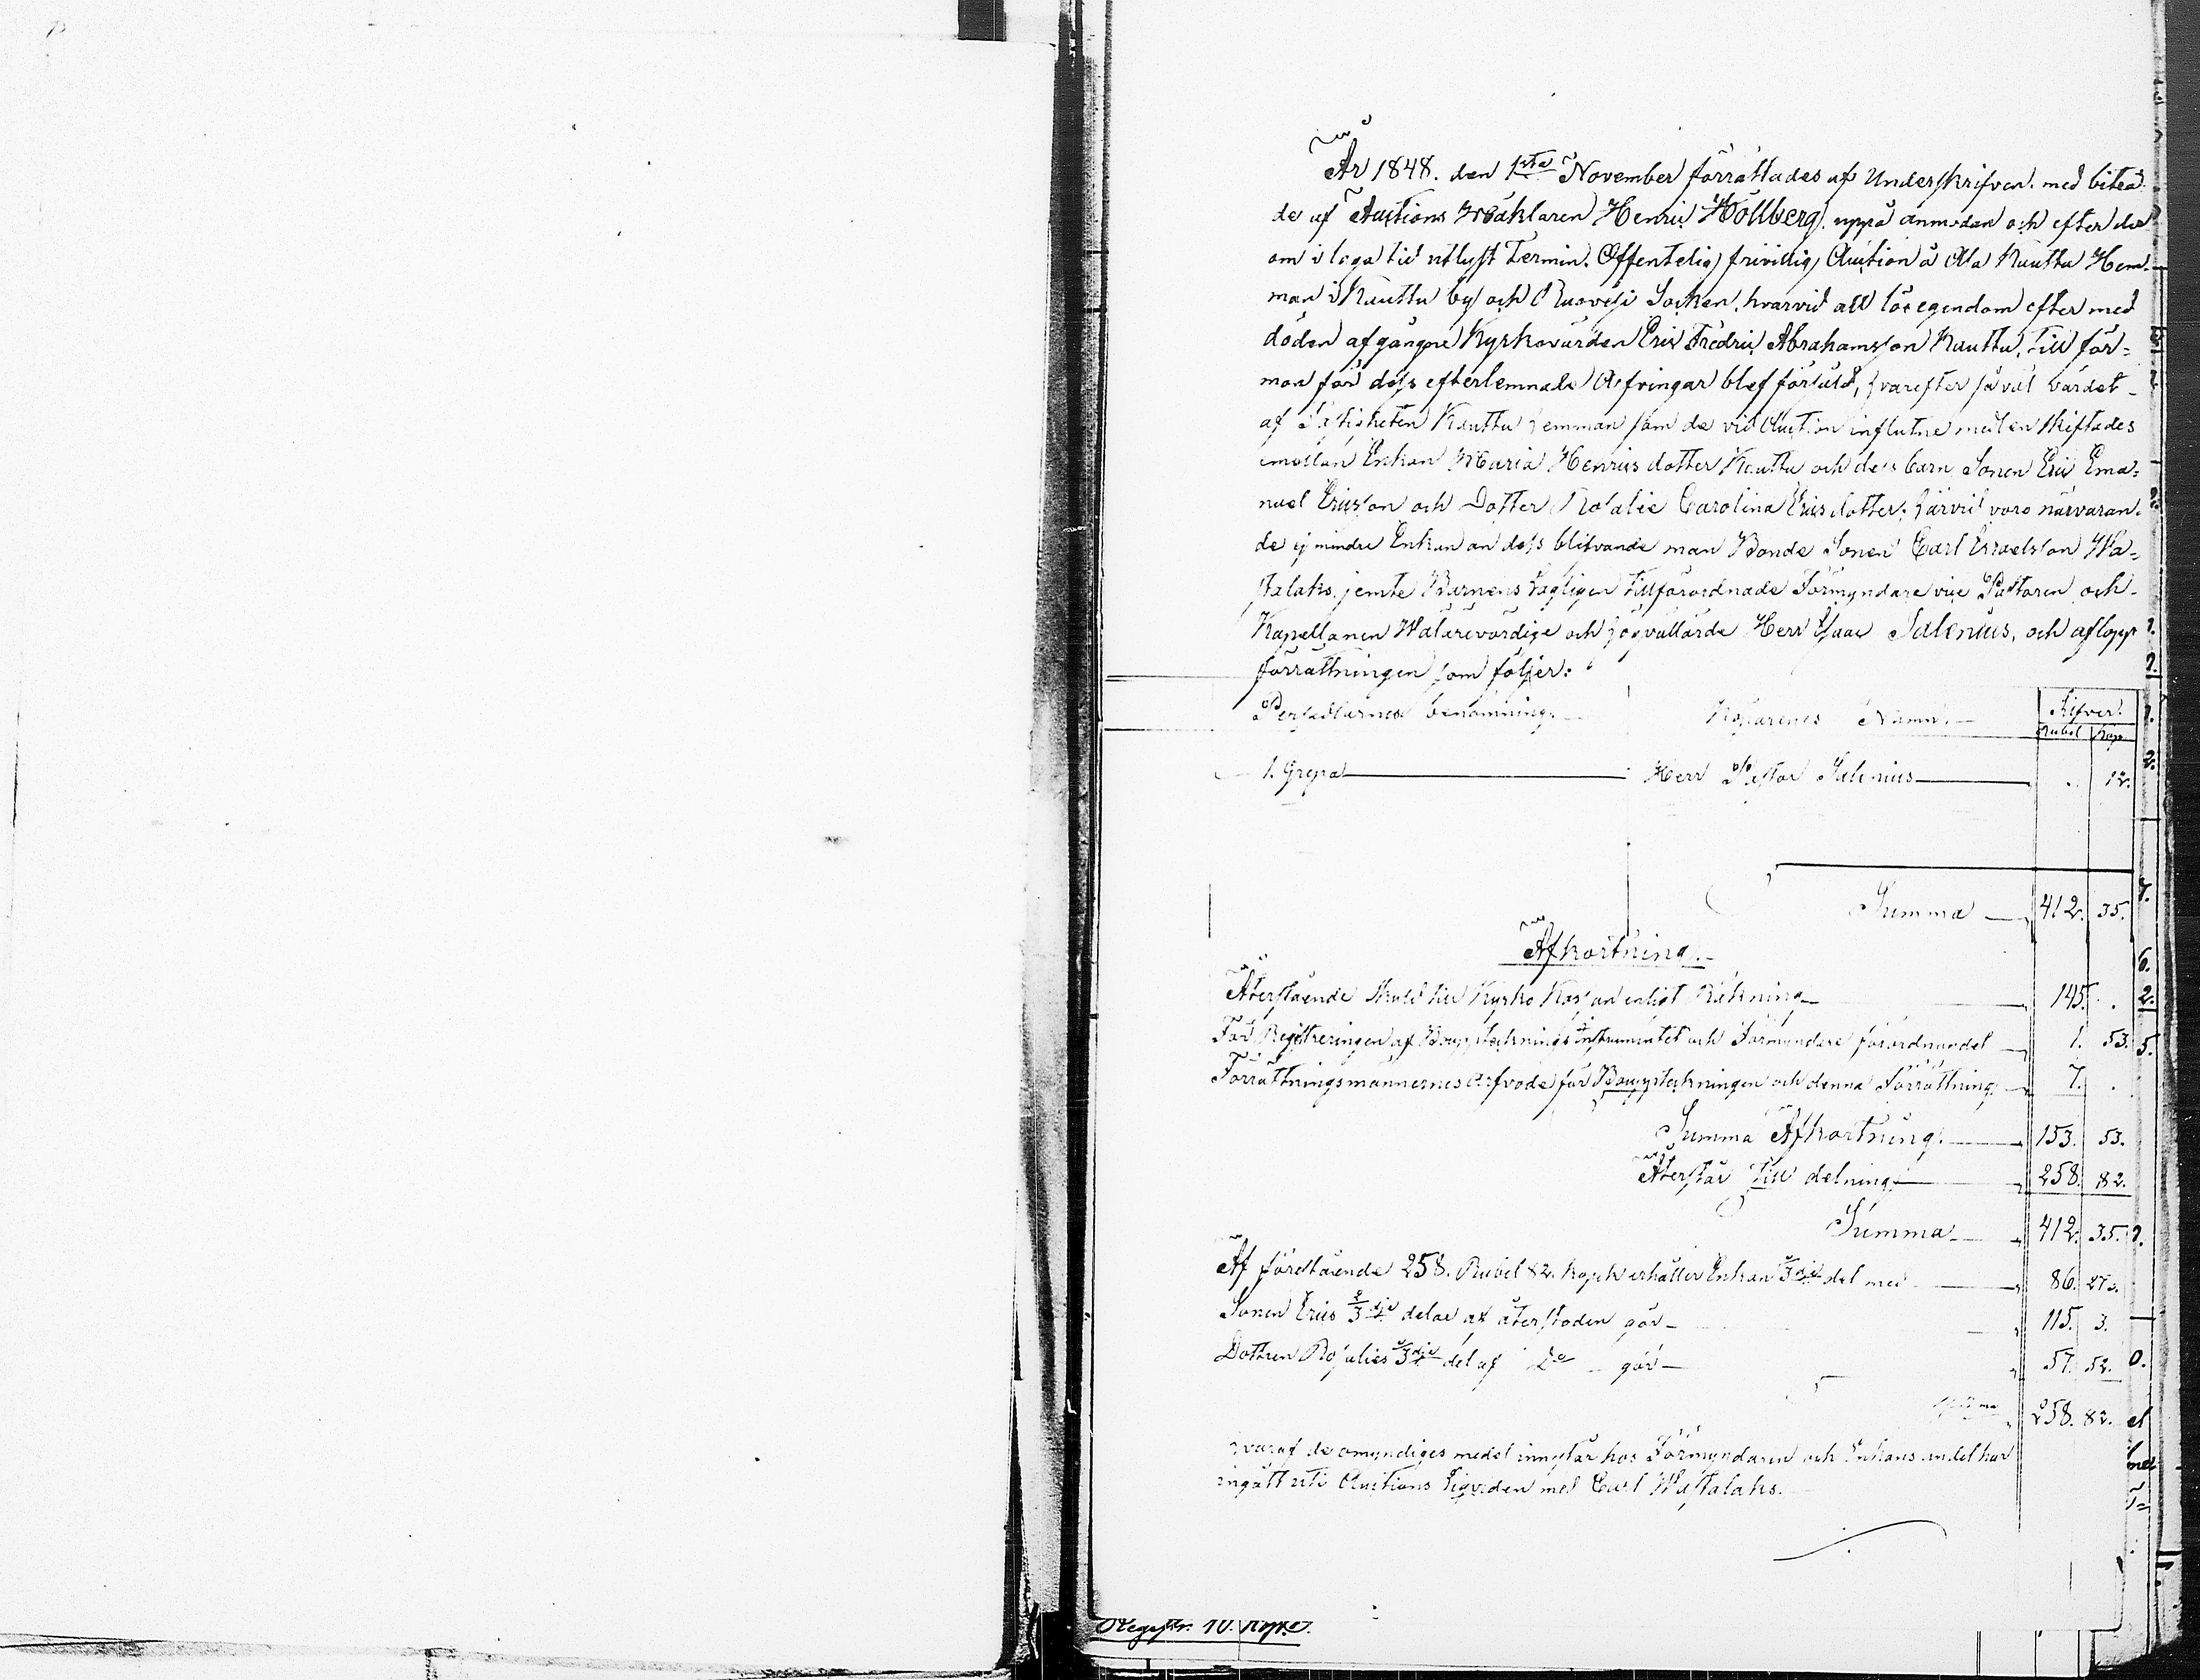 År 1848. den 1sta November förrättades af Underskrifven. med biträ-
de af Auctions Mäklaren Henric Hollberg, uppå anmodan och efter der
om i laga tid utlyst Termin. Offentelig frivillig Auction å Ala Kauttu Hem-
man i Kauttu by och Ruovesi Socken, hvarvid all lösegendom efter med
döden afgångne Kyrkovärden Eric Fredric Abrahamsson Kauttu, till för=
mon för dess efterlemnade Arfvingar blef försåld, hvarefter så väl värdet
af Fastigheten Kauttu hemman som de vid Auction influtne medlen skiftades
emellan Enkan Maria Henricsdotter Kauttu och dess barn Sonen Eric Ema=
nuel Ericsson och Dotter Rosalie Carolina Ericsdotter; härvid voro närvaran-
de ej mindre Enkan an dess blifvande man Bonde Sonen Carl Israelsson Wä=
stalaks, jemte Barnens lagligen tillförordnade Förmyndare vice Pastoren och
Kapellanen Wälärevördige och högvällärde Herr Isaac Salenius, och aflopp
förrättningen som följer:
Persedlarnes benämning. Köparenes Namn. Silfver.
Rubel Kop.
1. Grepa Herr Pastor Salenius . 12.
Summa 412. 35.
Afkortning.
Återstående skuld till Kyrko Kassan enligt Räkning 145. .
För Registreringen af Bouppteknings instrumentet och Förmyndare förordnandet 1. 53.
Förrättningsmännernes Arfvode för Bouppteckningen och denna Förrättning 7. .
Summa Afkortning. 153. 53.
Återstår till delning 258. 82.
Summa 412. 35.
Af förestående 258. Rubel 82. kopek erhåller Enkan 3dje del med 86. 27.
Sonen Erics 2/3dje delar af återstoden gör 115. 3.
Dottren Rosalies 3dje del af Do gör 57. 52.
Summa 258. 82.
hvaraf de omyndiges medel innestår hos Förmyndaren och Enkans andel har
ingått uti Auctions liqviden med Carl Wästalaks.
Registr. 10. Kop. S.